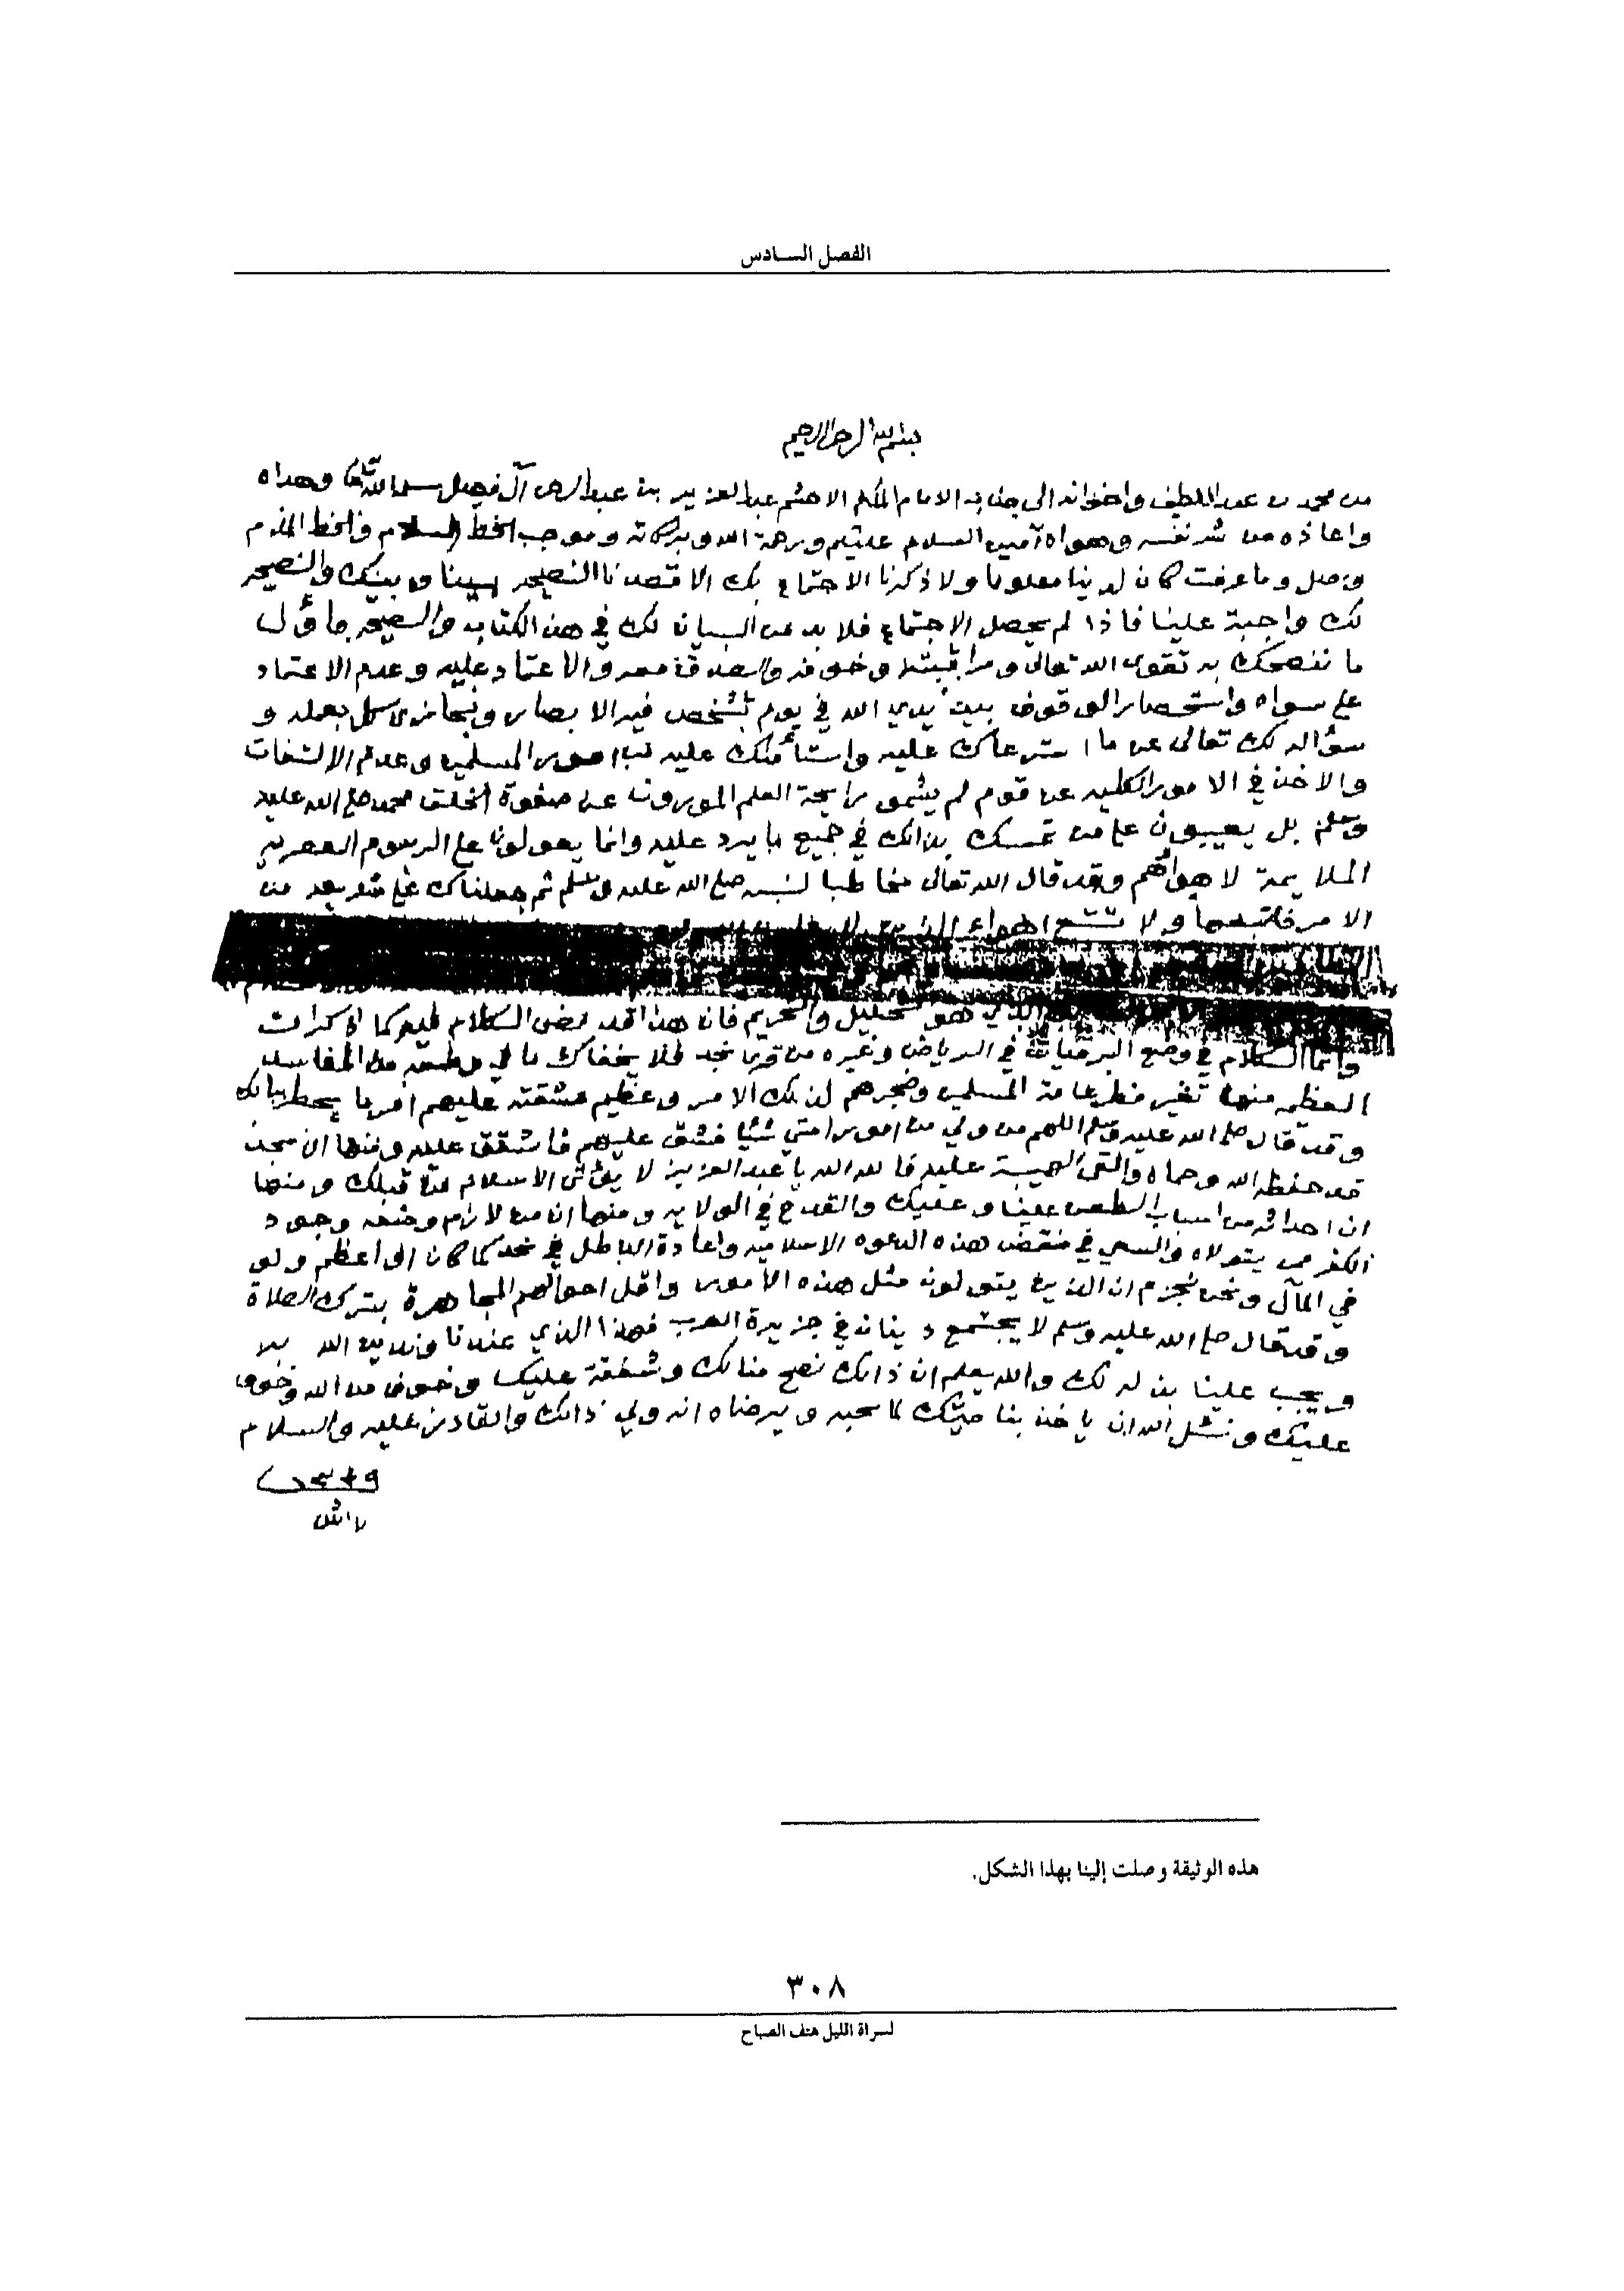 الفصل السادس
بسم الله الرحمن الرحيم
من محمد بن عبد اللطيف واخوانه الى جناب الامام المكرم الاحشم عبد العزيز بن عبد الرحمن آل فيصل سلمه الله تعالى وهداه
واعاذه من شر نفسه وهواه آمين السلام عليكم ورحمة الله وبركاته وموجب الخط السلام والخط المكرم
وصل وما عرفت كان لدينا معلوما ولا ذكرنا الاجتماع بك الا قصدنا النصيحه بيننا وبينك والنصيحه
لك واجبة علينا فاذا لم يحصل الاجتماع فلا بد من البيان لك في هذا الكتاب
ما ننصحك به تقوى الله تعالى ومراقبته وخوفه والصدق معه والاعتماد عليه وعدم الاعتماد
على سواه واستحضار الوقوف بين يدي الله في يوم تشخص فيه الابصار ويجازى كل بعمله و
سؤاله لك تعالى عن ما استرعاك عليه واستأمنك عليه من امور المسلمين وعدم الالتفات
والاخذ في الامور الكليه عن قوم لم يشموا رايحة العلم الموروث عن صفوة الخلق محمد صلى الله عليه
وسلم بل يعيبون على من تمسك بذالك في جميع ما يرد عليه وانما يعولون على الرسوم العصريه
الملايمة لاهوائهم وقد قال الله تعالى مخاطبا لنبيه صلى الله عليه وسلم ثم جعلناك على شريعة من
الامر فاتبعها ولا تتبع اهواء الذين لا
الذي هو التحليل والتحريم فان هذا قد مضى الكلام فيه كما ذكرات
وانما الكلام في وضع البرقيات في الرياض وغيره من قرى نجد فلا يخفاك ما في وضعه من المفاسد
العظيمه منها تغير فطر عامة المسلمين وضجرهم لذلك الامر وعظيم مشقته عليهم امر ما يحطر ببالك
وقد قال صلى الله عليه وسلم اللهم من ولي من امور امتي شيئا فشق عليهم فاشقق عليه ومنها ان نجد
قد حفظه الله وحماه والقى الهيبة عليه فالله الله يا عبد العزيز لا يؤتى الاسلام من قبلك ومنها
ان احداثه من اسباب الطعن علينا وعليك والقدح في الولايه ومنها ان من لازم وضعه وجود
الكفر ممن يتولاه والسعي في نقض هذه الدعوه الاسلاميه واعادة الباطل في نجد كما كان او اعظم ولو
في المآل ونحن نجزم ان الذين يتولون مثل هذه الامور واقل احوالهم المجاهرة بترك الصلاة
وقد قال صلى الله عليه وسلم لا يجتمع دينان في جزيرة العرب فهذا الذي عندنا وندين الله به
ويجب علينا بذله لك والله يعلم ان ذالك نصح منا لك وشفقة عليك وخوف من الله وخوف
عليك ونسئل الله ان ياخذ بناصيتك لما يحبه ويرضاه انه ولي ذالك والقادر عليه والسلام
هذه الوثيقة وصلت إلينا بهذا الشكل.
٣٠٨
لسراة الليل هتف الصباح